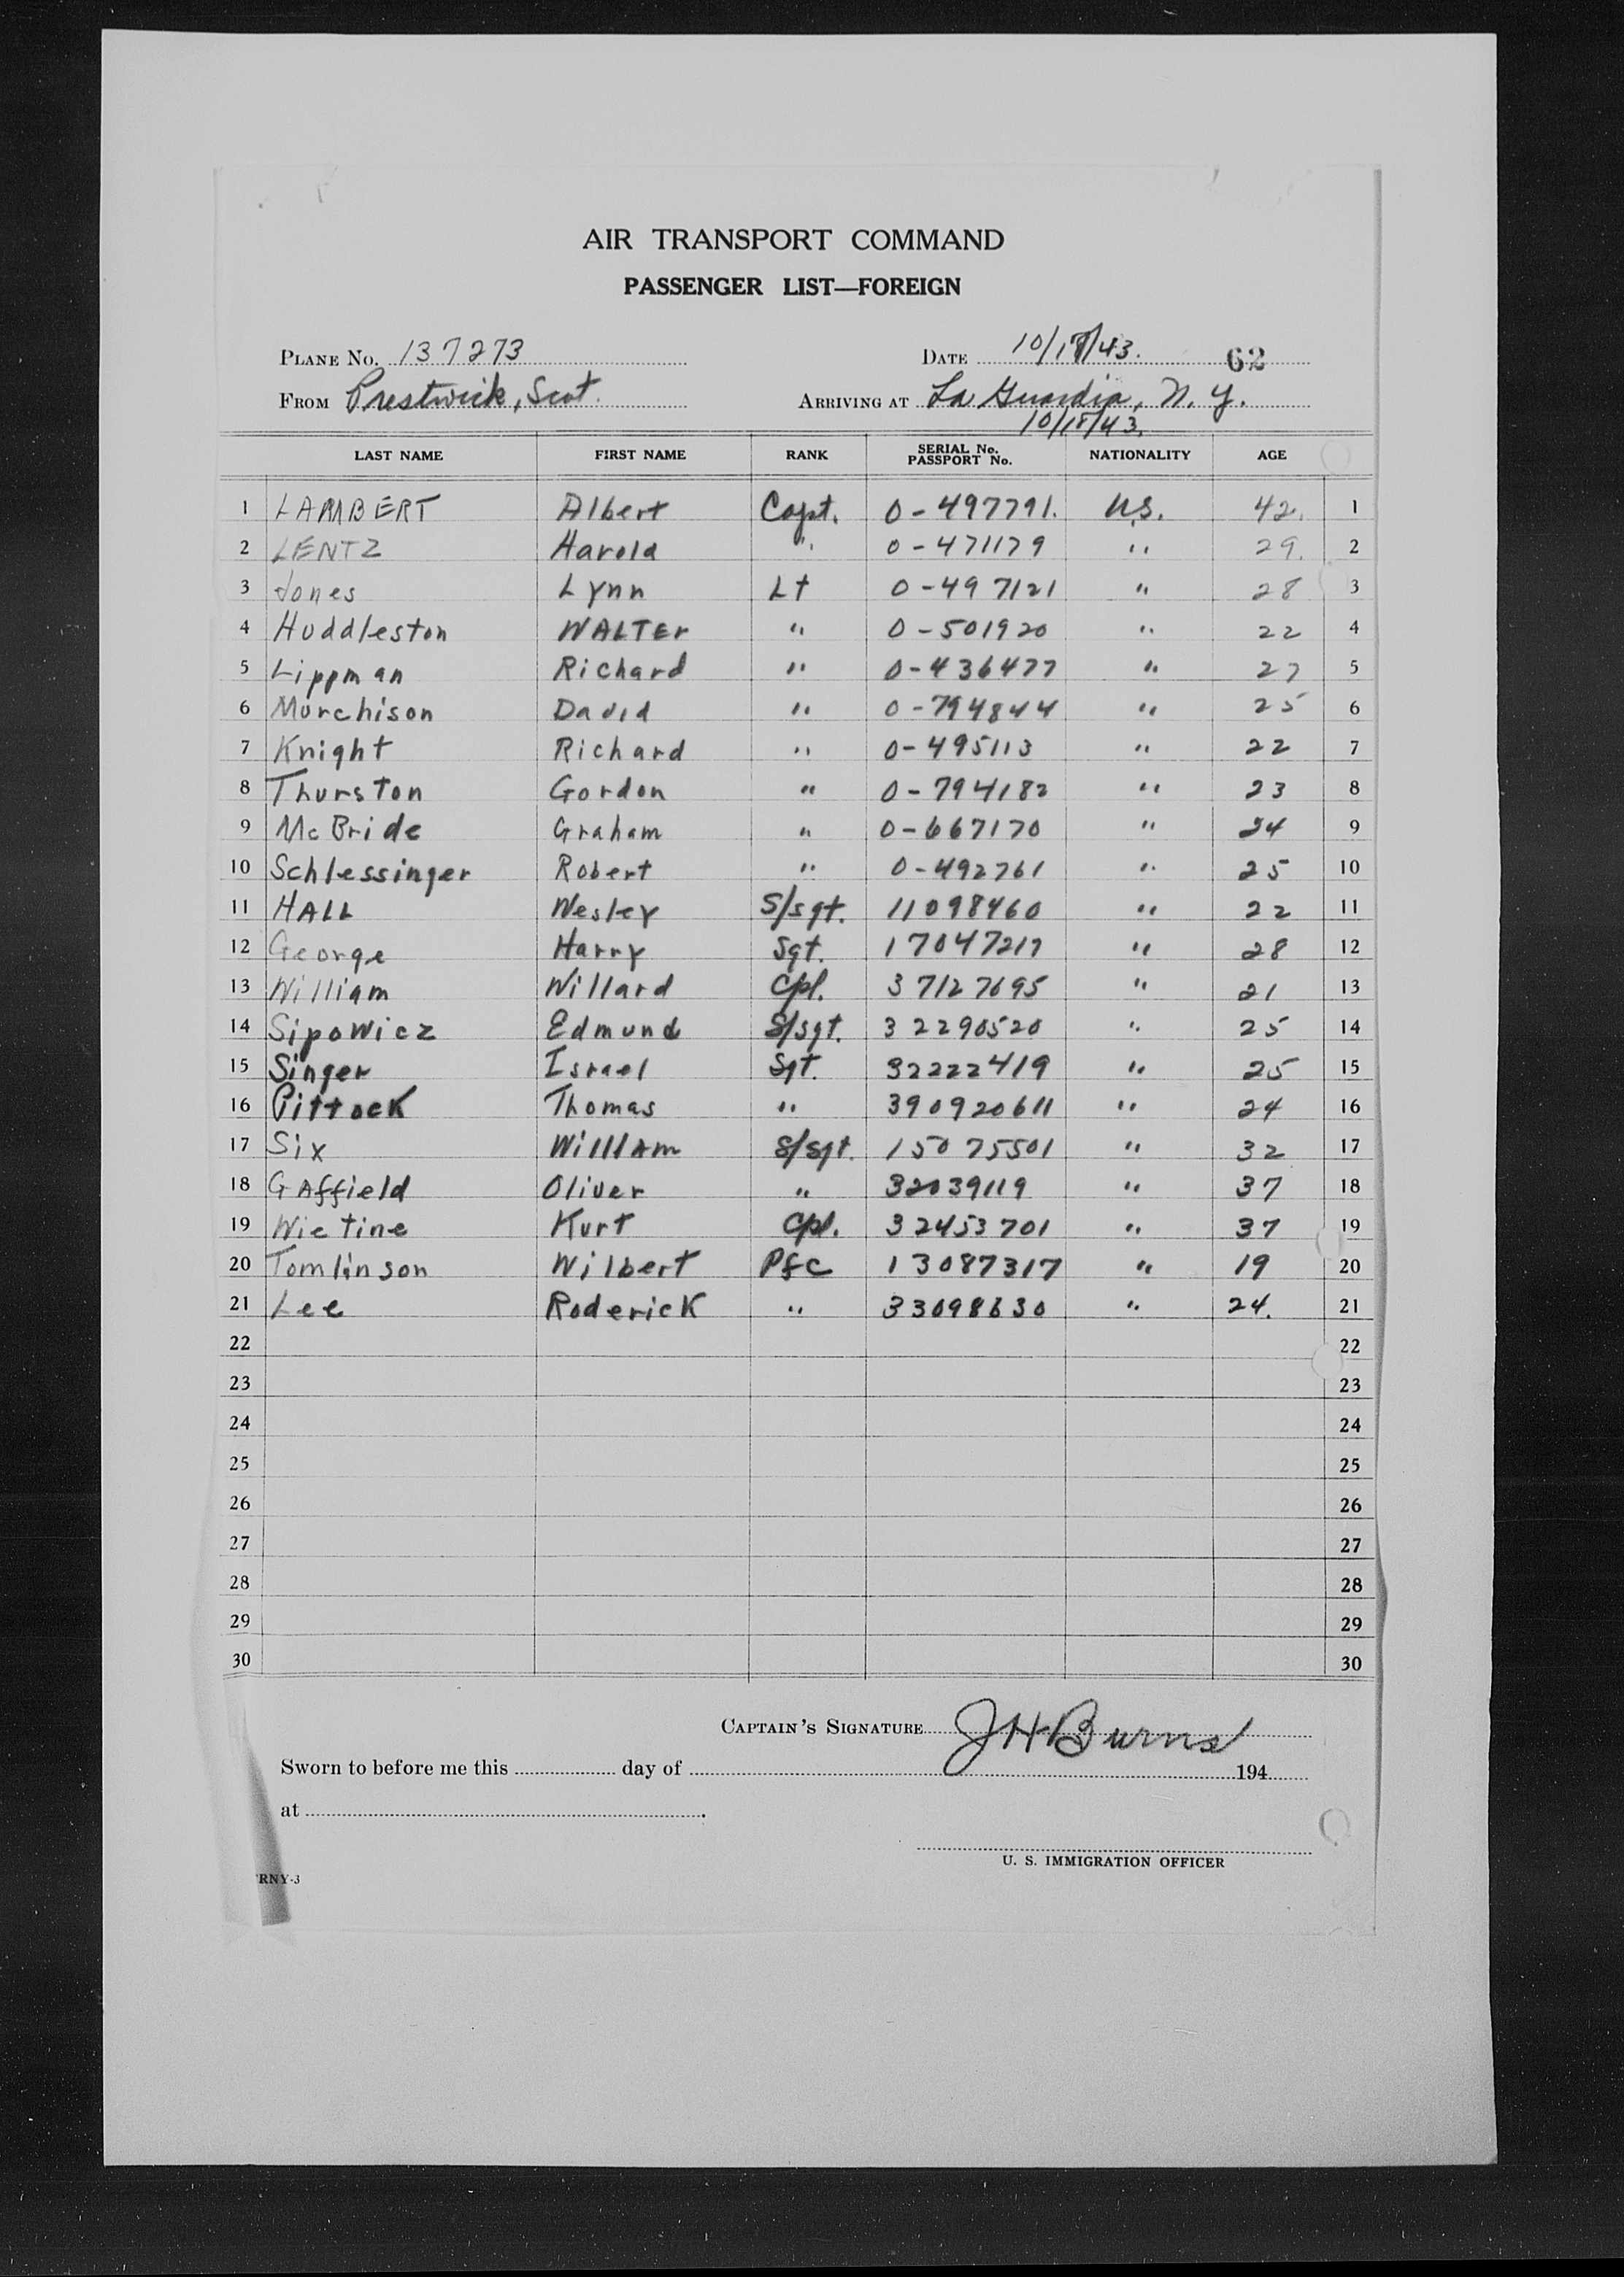 AIR TRANSPORT COMMAND
PASSENGER LIST—FOREIGN
PLANE No. 137273 DATE 10/18/43. 62
FROM Prestwick, Scot. ARRIVING AT La Guardia, N. Y.
10/18/43.
LAST NAME FIRST NAME RANK SERIAL No. PASSPORT No. NATIONALITY AGE
1 LAMBERT Albert Capt. O-497791. U.S. 42. 1
2 LENTZ Harold " O-471179 " 29. 2
3 Jones Lynn Lt O-497121 " 28 3
4 Huddleston WALTEr " O-501920 " 22 4
5 Lippman Richard " O-436477 " 27 5
6 Murchison David " O-794844 " 25 6
7 Knight Richard " O-495113 " 22 7
8 Thurston Gordon " O-794182 " 23 8
9 McBride Graham " O-667170 " 24 9
10 Schlessinger Robert " O-492761 " 25 10
11 HALL Wesley S/sgt. 11098460 " 22 11
12 George Harry Sgt. 17047217 " 28 12
13 William Willard Cpl. 37127695 " 21 13
14 Sipowicz Edmund S/sgt. 32290520 " 25 14
15 Singer Israel Sgt. 32222419 " 25 15
16 Pittock Thomas " 390920611 " 24 16
17 Six William S/sgt. 15075501 " 32 17
18 GAffield Oliver " 32039119 " 37 18
19 Wietine Kurt Cpl. 32453701 " 37 19
20 Tomlinson Wilbert Pfc 13087317 " 19 20
21 Lee Roderick " 33098630 " 24. 21
22 22
23 23
24 24
25 25
26 26
27 27
28 28
29 29
30 30
CAPTAIN'S SIGNATURE J H Burns
Sworn to before me this day of 194
at .
U. S. IMMIGRATION OFFICER
RNY-3